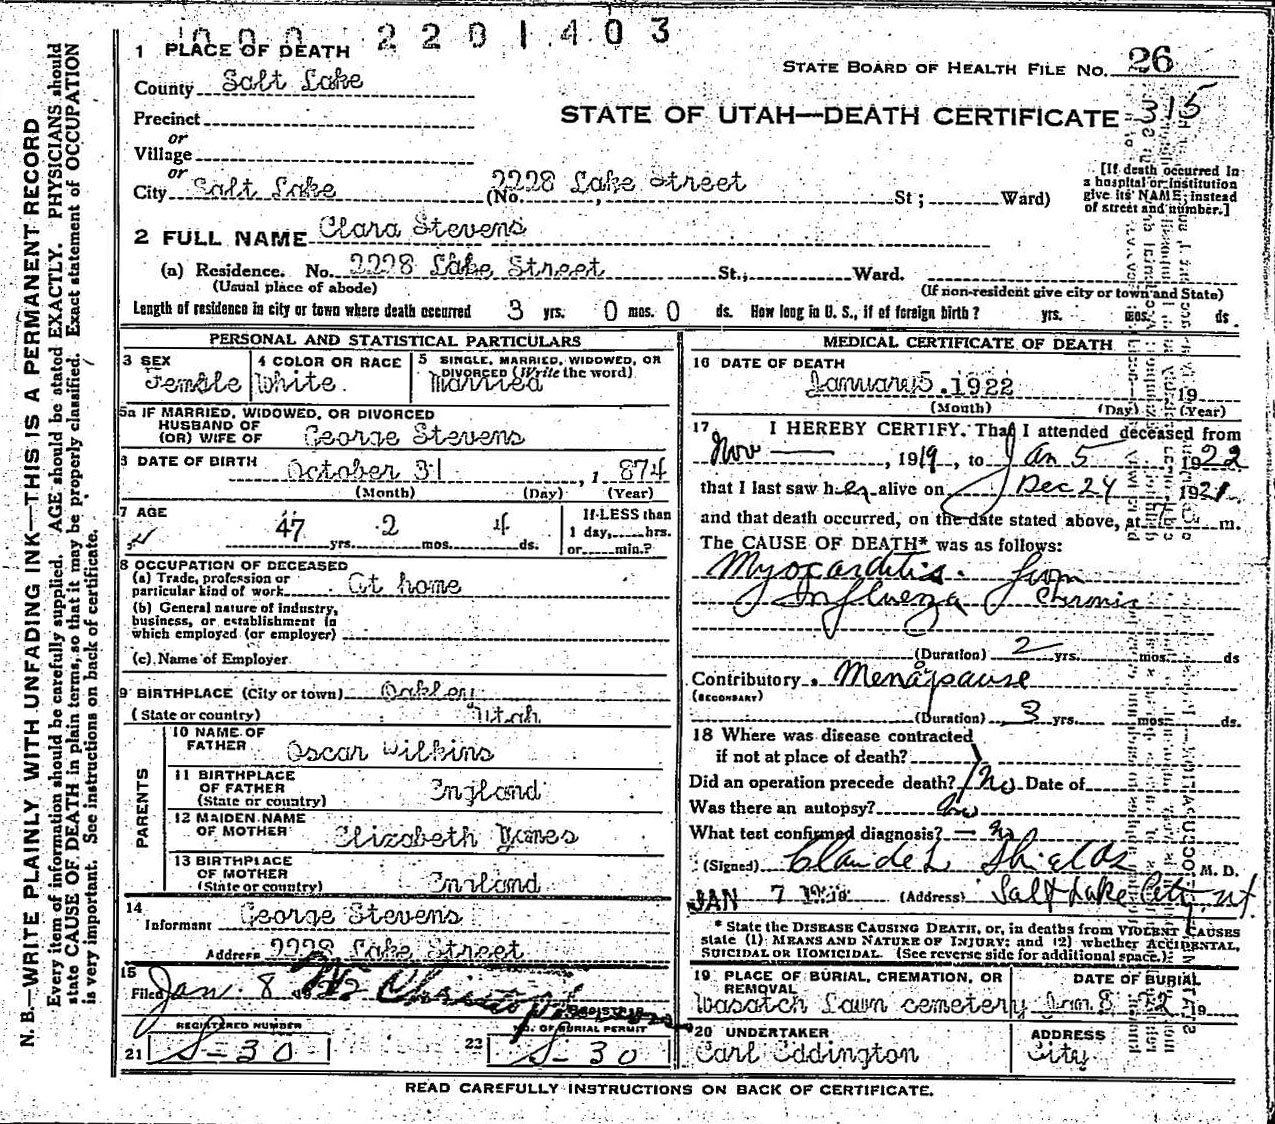 000 2201403
1 PLACE OF DEATH
STATE BOARD OF HEALTH FILE NO. 26
County Salt Lake
315
STATE OF UTAH—DEATH CERTIFICATE
Precinct
or
Village
or
City Salt Lake (No. 2228 Lake Street St; Ward)
[If death occurred in
a hospital or institution
give its NAME; instead
of street and number.]
2 FULL NAME Clara Stevens
(a) Residence. No. 2228 Lake Street St., Ward.
(Usual place of abode) (If non-resident give city or town and State)
Length of residence in city or town where death occurred 3 yrs. 0 mos. 0 ds. How long in U. S., if of foreign birth? yrs. mos. ds.
PERSONAL AND STATISTICAL PARTICULARS
3 SEX Female
4 COLOR OR RACE White.
5 SINGLE, MARRIED, WIDOWED, OR
DIVORCED (Write the word)
Married
5a IF MARRIED, WIDOWED, OR DIVORCED
HUSBAND OF
(OR) WIFE OF George Stevens
6 DATE OF BIRTH October 31 , 1 874
(Month) (Day) (Year)
7 AGE 47 yrs. 2 mos. 4 ds.
If LESS than
1 day, hrs.
or min.?
8 OCCUPATION OF DECEASED
(a) Trade, profession or
particular kind of work At home
(b) General nature of industry,
business, or establishment in
which employed (or employer)
(c) Name of Employer
9 BIRTHPLACE (City or town) Oakley
(State or country) Utah
PARENTS
10 NAME OF
FATHER Oscar Wilkins
11 BIRTHPLACE
OF FATHER
(State or country) England
12 MAIDEN NAME
OF MOTHER Elizabeth
13 BIRTHPLACE
OF MOTHER
(State or country) England
14
Informant George Stevens
Address 2228 Lake Street
15
Filed Jan. 8 1922
REGISTRAR
REGISTERED NUMBER
21 S-30
NO. OF BURIAL PERMIT
22 S-30
MEDICAL CERTIFICATE OF DEATH
16 DATE OF DEATH
January 5. 1922 19
(Month) (Day) (Year)
17 I HEREBY CERTIFY. That I attended deceased from
Nov — , 1919, to Jan 5 1922
that I last saw her alive on Dec 24 1921
and that death occurred, on the date stated above, at 7 m.
The CAUSE OF DEATH* was as follows:
Myocarditis. from
Influenza Chronic
(Duration) 2 yrs. mos. ds
Contributory Menapause
(SECONDARY)
(Duration) 3 yrs. mos. ds.
18 Where was disease contracted
if not at place of death?
Did an operation precede death? No Date of
Was there an autopsy? No
What test confirmed diagnosis? — no
(Signed) Claude L Shields M. D.
JAN 7 (Address) Salt Lake City, Ut.
* State the DISEASE CAUSING DEATH, or, in deaths from VIOLENT CAUSES
state (1) MEANS AND NATURE OF INJURY; and (2) whether ACCIDENTAL,
SUICIDAL OR HOMICIDAL. (See reverse side for additional space.)
19 PLACE OF BURIAL, CREMATION, OR
REMOVAL
Wasatch Lawn cemetery
DATE OF BURIAL
Jan. 8 22 19
20 UNDERTAKER
Carl Eddington
ADDRESS
City
READ CAREFULLY INSTRUCTIONS ON BACK OF CERTIFICATE.
N. B.—WRITE PLAINLY WITH UNFADING INK—THIS IS A PERMANENT RECORD
Every item of information should be carefully supplied. AGE should be stated EXACTLY. PHYSICIANS should
state CAUSE OF DEATH in plain terms, so that it may be properly classified. Exact statement of OCCUPATION
is very important. See instructions on back of certificate.